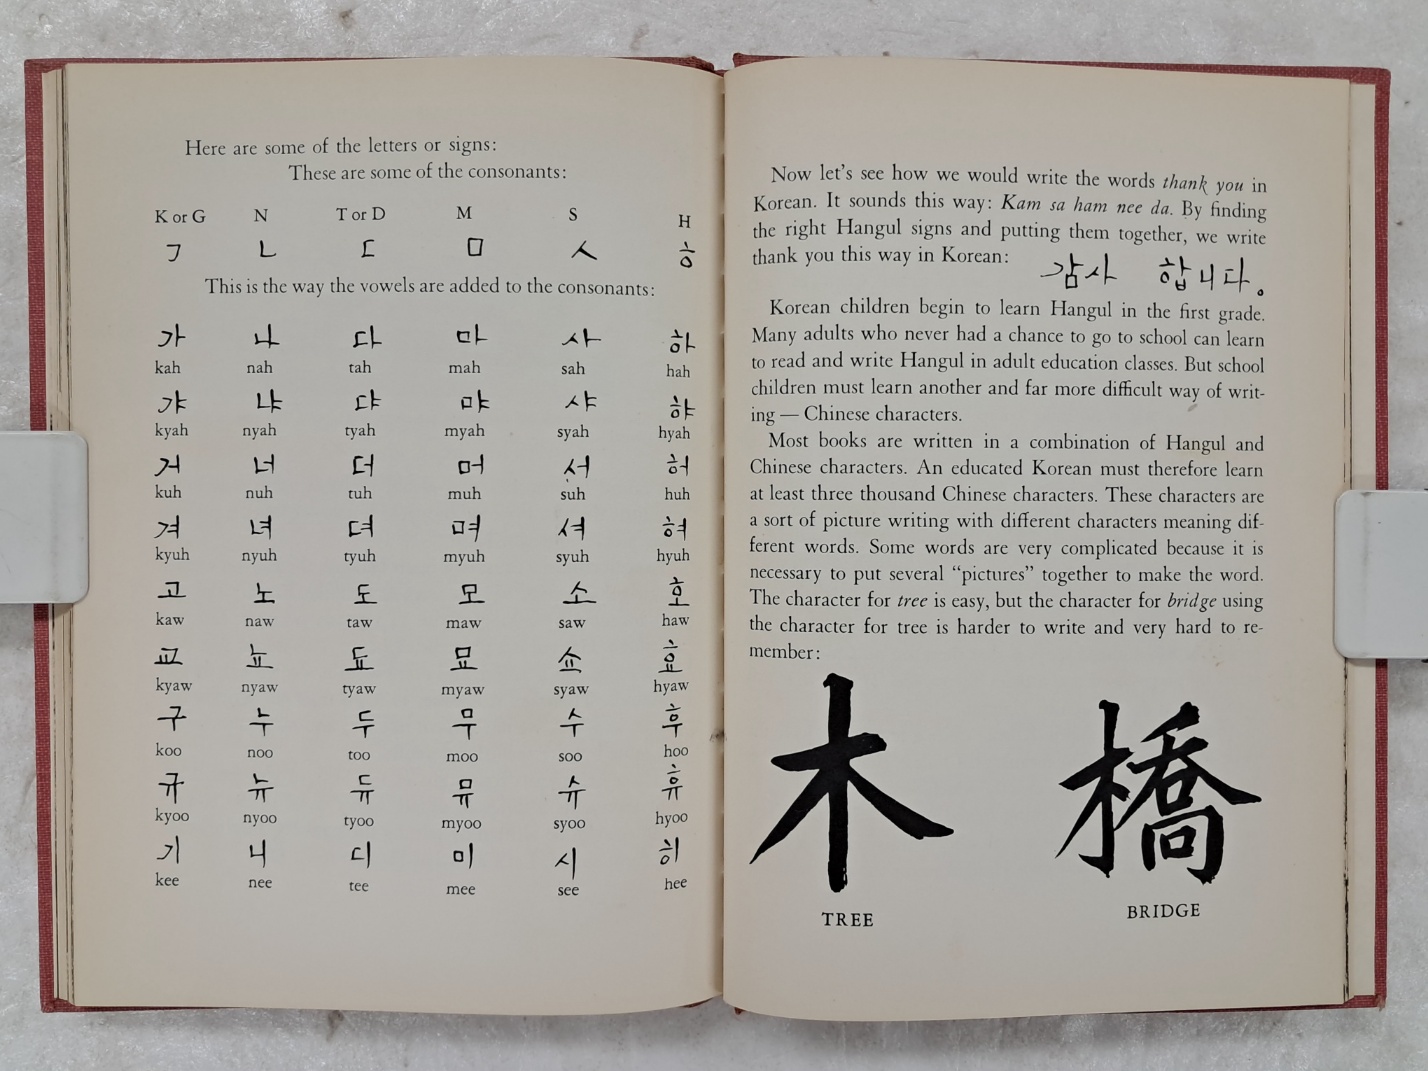 Here are some of the letters or signs:
These are some of the consonants:
K or G N T or D M S H
ㄱ ㄴ ㄷ ㅁ ㅅ ㅎ
This is the way the vowels are added to the consonants:
가 나 다 마 사 하
kah nah tah mah sah hah
갸 냐 댜 먀 샤 햐
kyah nyah tyah myah syah hyah
거 너 더 머 서 허
kuh nuh tuh muh suh huh
겨 녀 뎌 며 셔 혀
kyuh nyuh tyuh myuh syuh hyuh
고 노 도 모 소 호
kaw naw taw maw saw haw
교 뇨 됴 묘 쇼 효
kyaw nyaw tyaw myaw syaw hyaw
구 누 두 무 수 후
koo noo too moo soo hoo
규 뉴 듀 뮤 슈 휴
kyoo nyoo tyoo myoo syoo hyoo
기 니 디 미 시 히
kee nee tee mee see hee
Now let's see how we would write the words thank you in
Korean. It sounds this way: Kam sa ham nee da. By finding
the right Hangul signs and putting them together, we write
thank you this way in Korean: 감사 합니다.
Korean children begin to learn Hangul in the first grade.
Many adults who never had a chance to go to school can learn
to read and write Hangul in adult education classes. But school
children must learn another and far more difficult way of writ-
ing — Chinese characters.
Most books are written in a combination of Hangul and
Chinese characters. An educated Korean must therefore learn
at least three thousand Chinese characters. These characters are
a sort of picture writing with different characters meaning dif-
ferent words. Some words are very complicated because it is
necessary to put several “pictures” together to make the word.
The character for tree is easy, but the character for bridge using
the character for tree is harder to write and very hard to re-
member:
木 橋
TREE BRIDGE